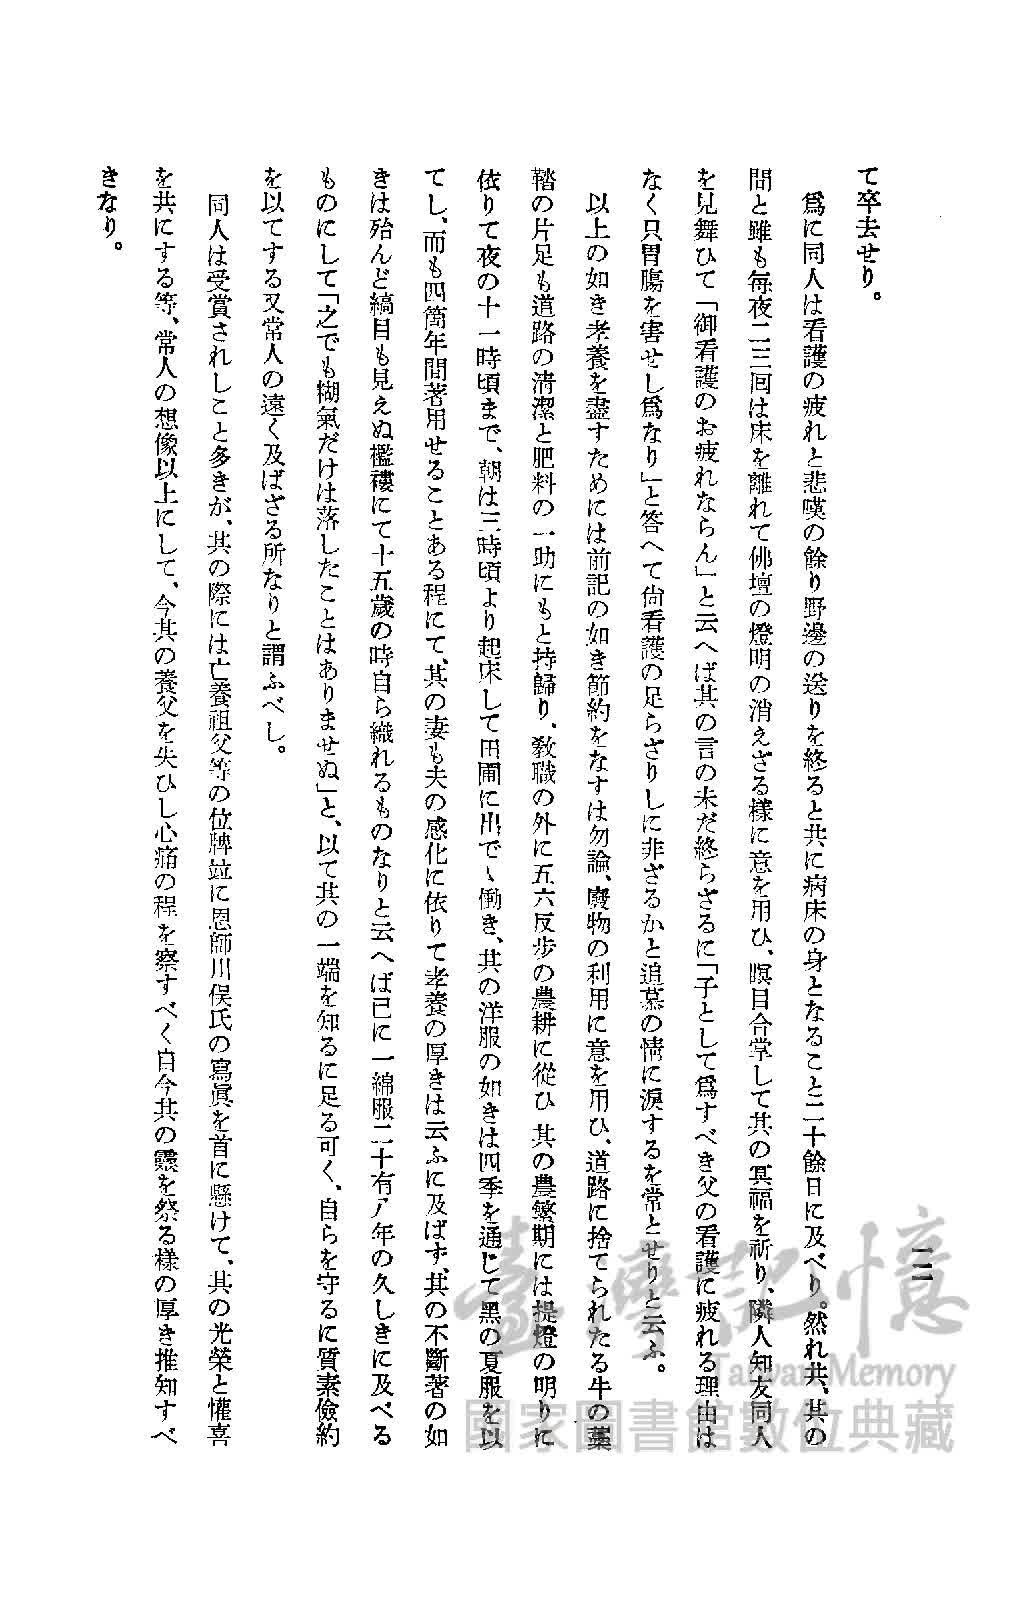 一二
て卒去せり。
爲に同人は看護の疲れと悲嘆の餘り野邊の送りを終ると共に病床の身となること二十餘日に及べり。然れ共、其の
間と雖も每夜二三回は床を離れて佛壇の燈明の消えざる樣に意を用ひ、瞑目合掌して其の冥福を祈り、隣人知友同人
を見舞ひて「御看護のお疲れならん」と云へば其の言の未だ終らざるに「子として爲すべき父の看護に疲れる理由は
なく只胃腸を害せし爲なり」と答へて尙看護の足らざりしに非ざるかと追慕の情に淚するを常とせりと云ふ。
以上の如き孝養を盡すためには前記の如き節約をなすは勿論、廢物の利用に意を用ひ、道路に捨てられたる牛の藁
鞜の片足も道路の淸潔と肥料の一助にもと持歸り、敎職の外に五六反步の農耕に從ひ其の農繁期には提燈の明りに
依りて夜の十一時頃まで、朝は三時頃より起床して田圃に出でゝ働き、其の洋服の如きは四季を通じて黑の夏服を以
てし、而も四箇年間著用せることある程にて、其の妻も夫の感化に依りて孝養の厚きは云ふに及ばず、其の不斷著の如
きは殆んど縞目も見えぬ襤褸にて十五歲の時自ら織れるものなりと云へば已に一綿服二十有八年の久しきに及べる
ものにして「之でも糊氣だけは落したことはありませぬ」と、以て其の一端を知るに足る可く、自らを守るに質素儉約
を以てする又常人の遠く及ばざる所なりと謂ふべし。
同人は受賞されしこと多きが、其の際には亡養祖父等の位牌竝に恩師川俣氏の寫眞を首に懸けて、其の光榮と懽喜
を共にする等、常人の想像以上にして、今其の養父を失ひし心痛の程を察すべく自今其の靈を祭る樣の厚き推知すべ
きなり。
臺灣記憶
Taiwan Memory
國家圖書館數位典藏